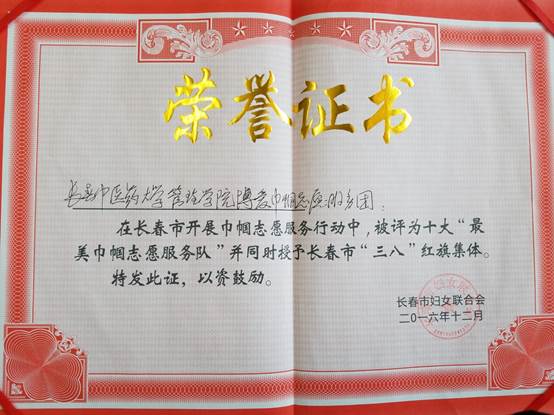 荣誉证书
长春中医药大学管理学院博爱巾帼志愿服务团：
在长春市开展巾帼志愿服务行动中，被评为十大“最
美巾帼志愿服务队”并同时授予长春市“三八”红旗集体。
特发此证，以资鼓励。
长春市妇女联合会
二〇一六年十二月